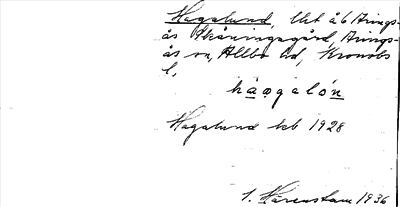 Hagalund, lht å 6 Arings-
ås Skåningsgård, Arings-
ås sn, Allbo hd, Kronobs
l,
ha̲o̲galón̲
Hagalund kb 1928
1. Härenstam 1936